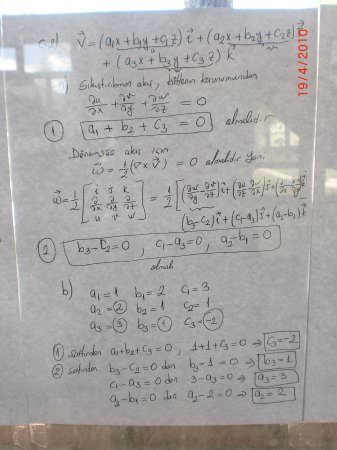 V⃗ = (a₁x + b₁y + c₁z) i⃗ + (a₂x + b₂y + c₂z) j⃗
+ (a₃x + b₃y + c₃z) k⃗
19/4/2010
Sıkıştırılamaz akış, kütlenin korunumundan
∂u/∂x + ∂v/∂y + ∂w/∂z = 0
① a₁ + b₂ + c₃ = 0 olmalıdır.
Dönmesiz akış için
ω⃗ = 1/2 (∇ x V⃗) = 0 olmalıdır yani.
ω⃗ = 1/2 [ i j k ∂/∂x ∂/∂y ∂/∂z u v w ] = 1/2 [(∂w/∂y - ∂v/∂z) i⃗ + (∂u/∂z - ∂w/∂x) j⃗ + (∂v/∂x - ∂u/∂y) k⃗
(b₃-c₂) i⃗ + (c₁-a₃) j⃗ + (a₂-b₁) k⃗
② b₃-c₂ = 0 , c₁-a₃ = 0 , a₂-b₁ = 0
olmalı
b) a₁ = 1 b₁ = 2 c₁ = 3
a₂ = 2 b₂ = 1 c₂ = 1
a₃ = 3 b₃ = 1 c₃ = -2
① şartından a₁+b₂+c₃ = 0 , 1+1+c₃ = 0 → c₃ = -2
② şartından b₃-c₂ = 0 dan b₃-1 = 0 → b₃ = 1
c₁-a₃ = 0 dan 3-a₃ = 0 → a₃ = 3
a₂-b₁ = 0 dan a₂-2 = 0 → a₂ = 2